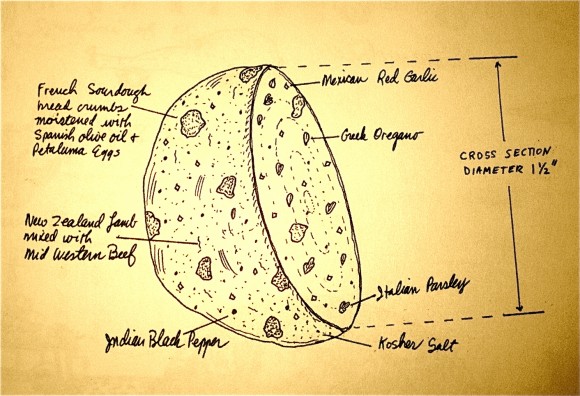 French Sourdough
bread crumbs
moistened with
Spanish olive oil +
Petaluma Eggs
Mexican Red Garlic
Greek Oregano
CROSS SECTION
DIAMETER 1½"
New Zealand Lamb
mixed with
Mid Western Beef
Italian Parsley
Indian Black Pepper
Kosher Salt